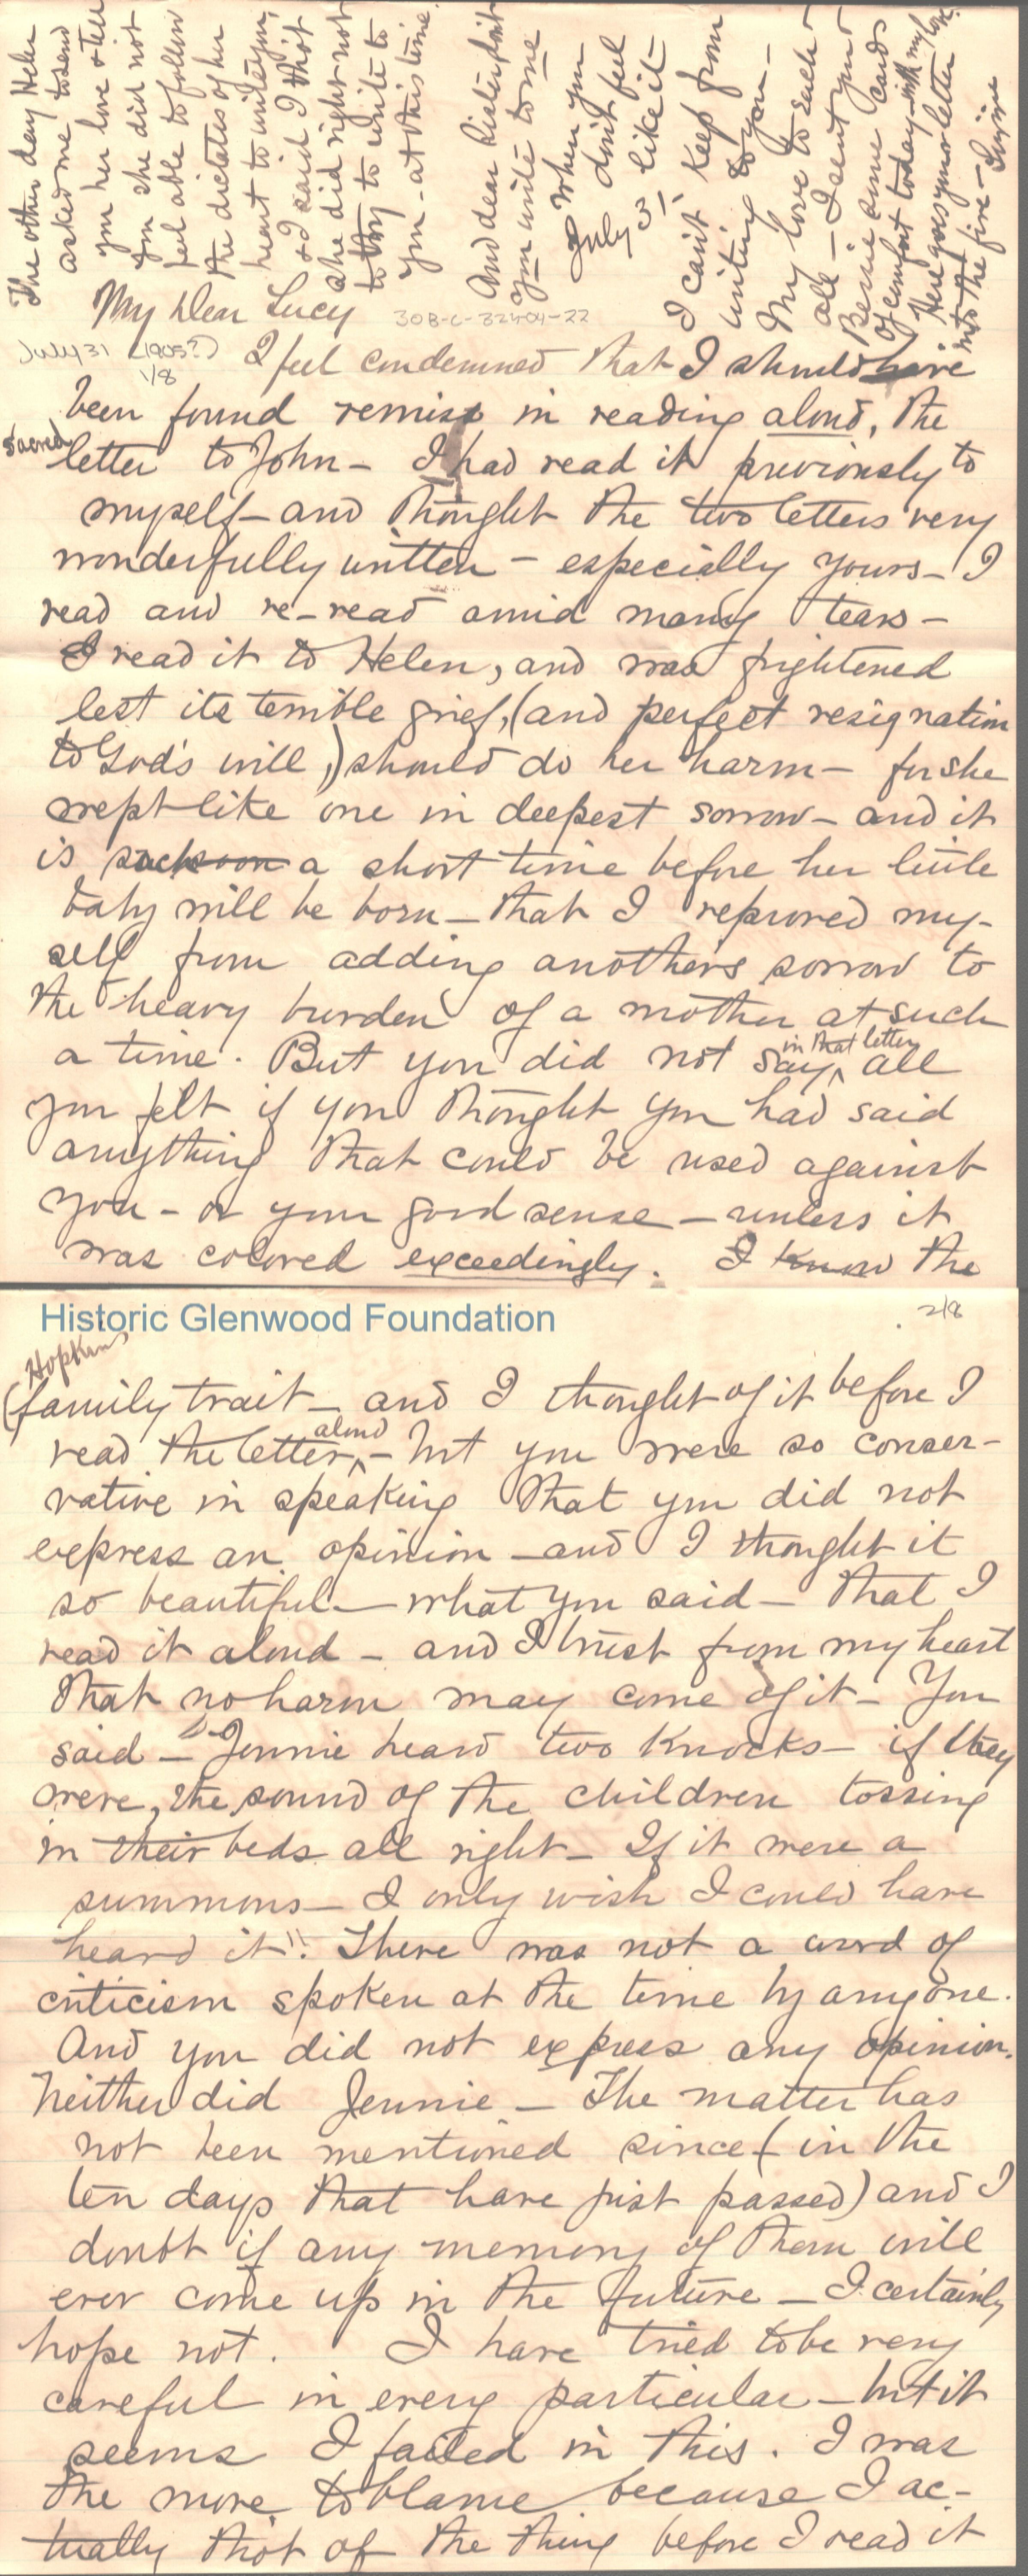 The other day Helen
asked me to send
you her love & tell
you she did not
feel able to follow
the dictates of her
heart to write you,
& I said I thot
she did right not
to try to write to
you - at this time.
And dear sister, don't
you write to me
when you
don't feel
like it
July 31
I can't keep from
writing to you -
My love to each
all - I sent you &
Bessie some cards
of comfort today - with my love.
Here goes your letter
into the fire -
My dear Lucy
308-C-32404-22
July 31 (1905?)
1/8
I feel condemned that I should have
been found remiss in reading aloud, the
sacred letter to John - I had read it previously to
myself - and thought the two letters very
wonderfully written - especially yours - I
read and re-read amid many tears -
I read it to Helen, and was frightened
lest its terrible grief, (and perfect resignation
to God's will,) should do her harm - for she
wept like one in deepest sorrow - and it
is such soon a short time before her little
baby will be born - that I reproved my-
self from adding anothers sorrow to
the heavy burden of a mother at such
a time. But you did not say, in that letter all
you felt if you thought you had said
anything that could be used against
you - or your good sense - unless it
was colored exceedingly. I know the
Historic Glenwood Foundation
2/8
Hopkins
(family trait - and I thought of it before I
read the letter, aloud - but you were so conser-
vative in speaking that you did not
express an opinion - and I thought it
so beautiful - what you said - that I
read it aloud - and I trust from my heart
that no harm may come of it - You
said - "Jennie heard two knocks - if they
were, the sound of the children tossing
in their beds all right - If it were a
summons - I only wish I could have
heard it". There was not a word of
criticism spoken at the time by anyone.
And you did not express any opinion.
Neither did Jennie - The matter has
not been mentioned since (in the
ten days that have just passed) and I
doubt if any memory of them will
ever come up in the future - I certainly
hope not. I have tried to be very
careful in every particular - but it
seems I failed in this. I was
the more to blame because I ac-
tually thot of the thing before I read it